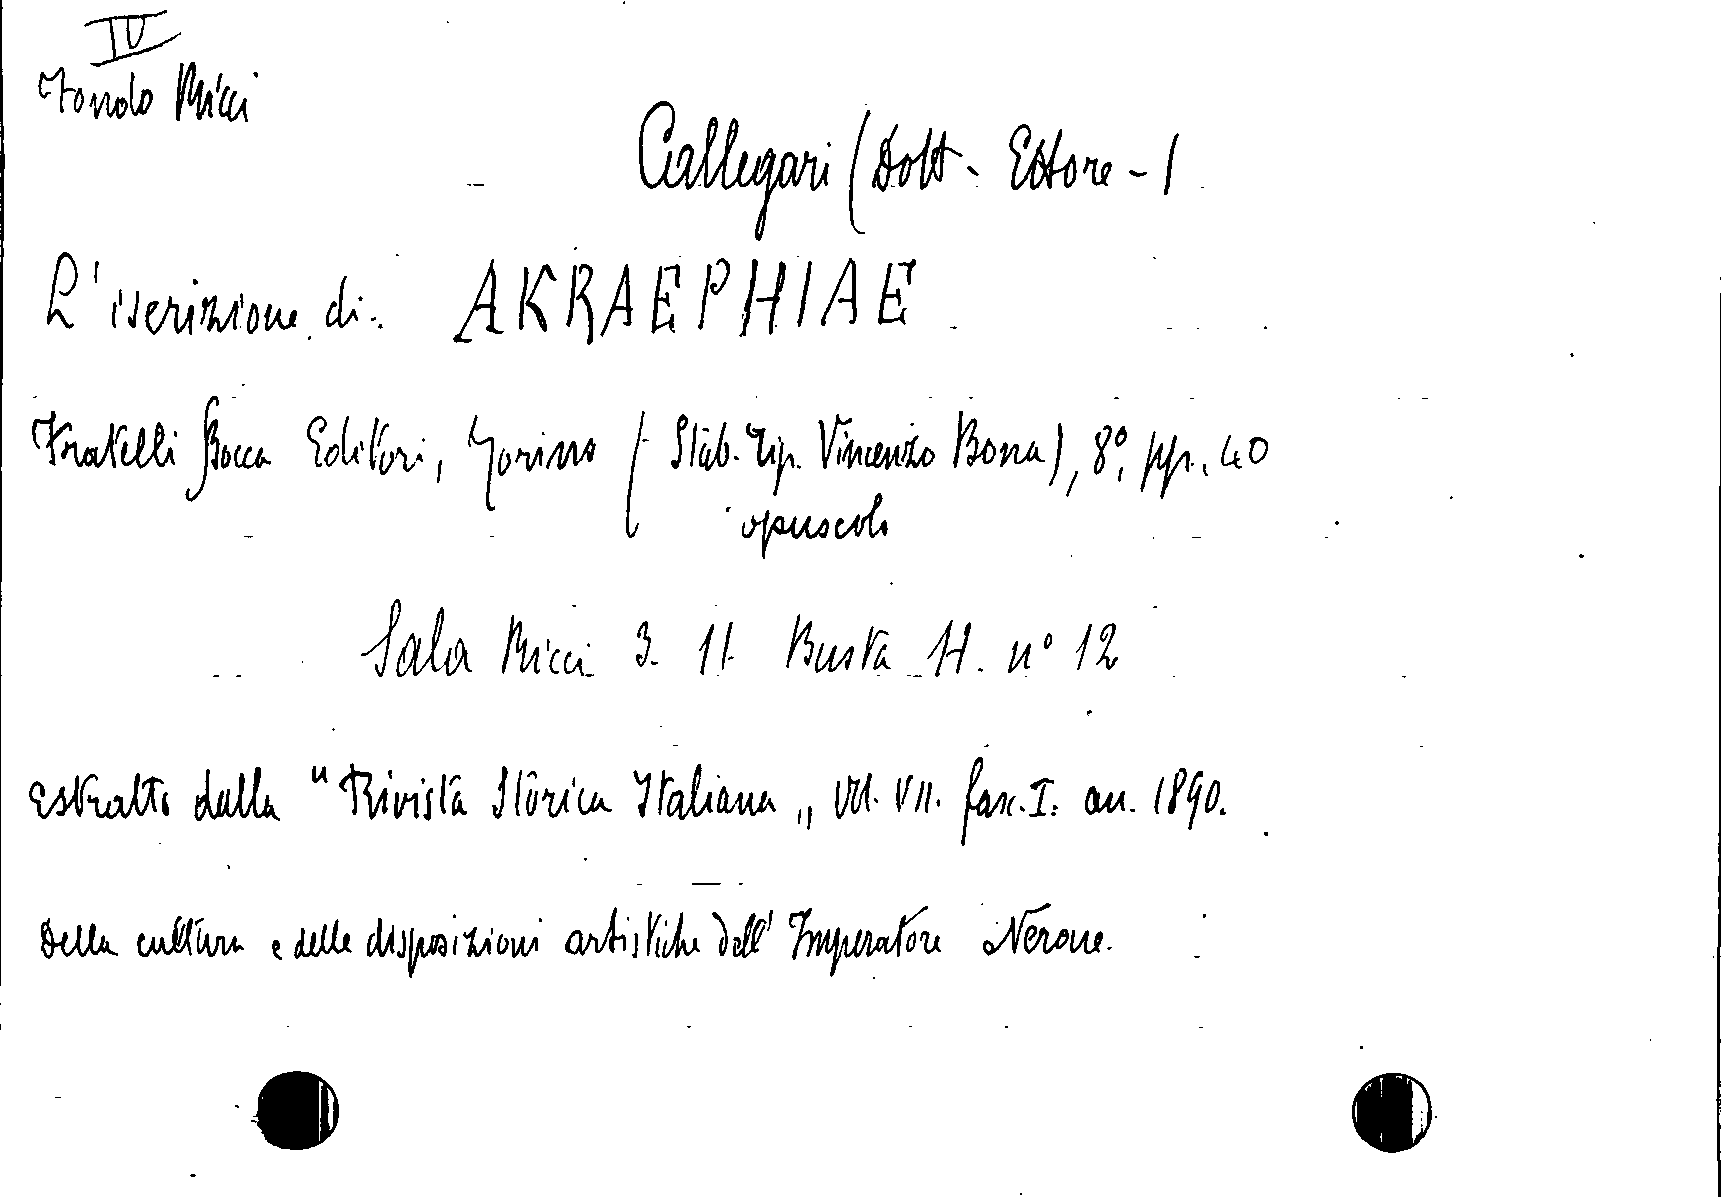 IV
Fondo Ricci
Callegari (Dott. Ettore -)
L'iscrizione di. AKRAEPHIAE
Fratelli Bocca Editori, Torino (Stab. Tip. Vincenzo Bona), 8°, pp. 40
opuscolo
Sala Ricci 3. 11. Busta H. n° 12
Estratto dalla "Rivista Storica Italiana„ Vol. VII. fasc. I. an. 1890.
Della cultura e delle disposizioni artistiche dell' Imperatore Nerone.